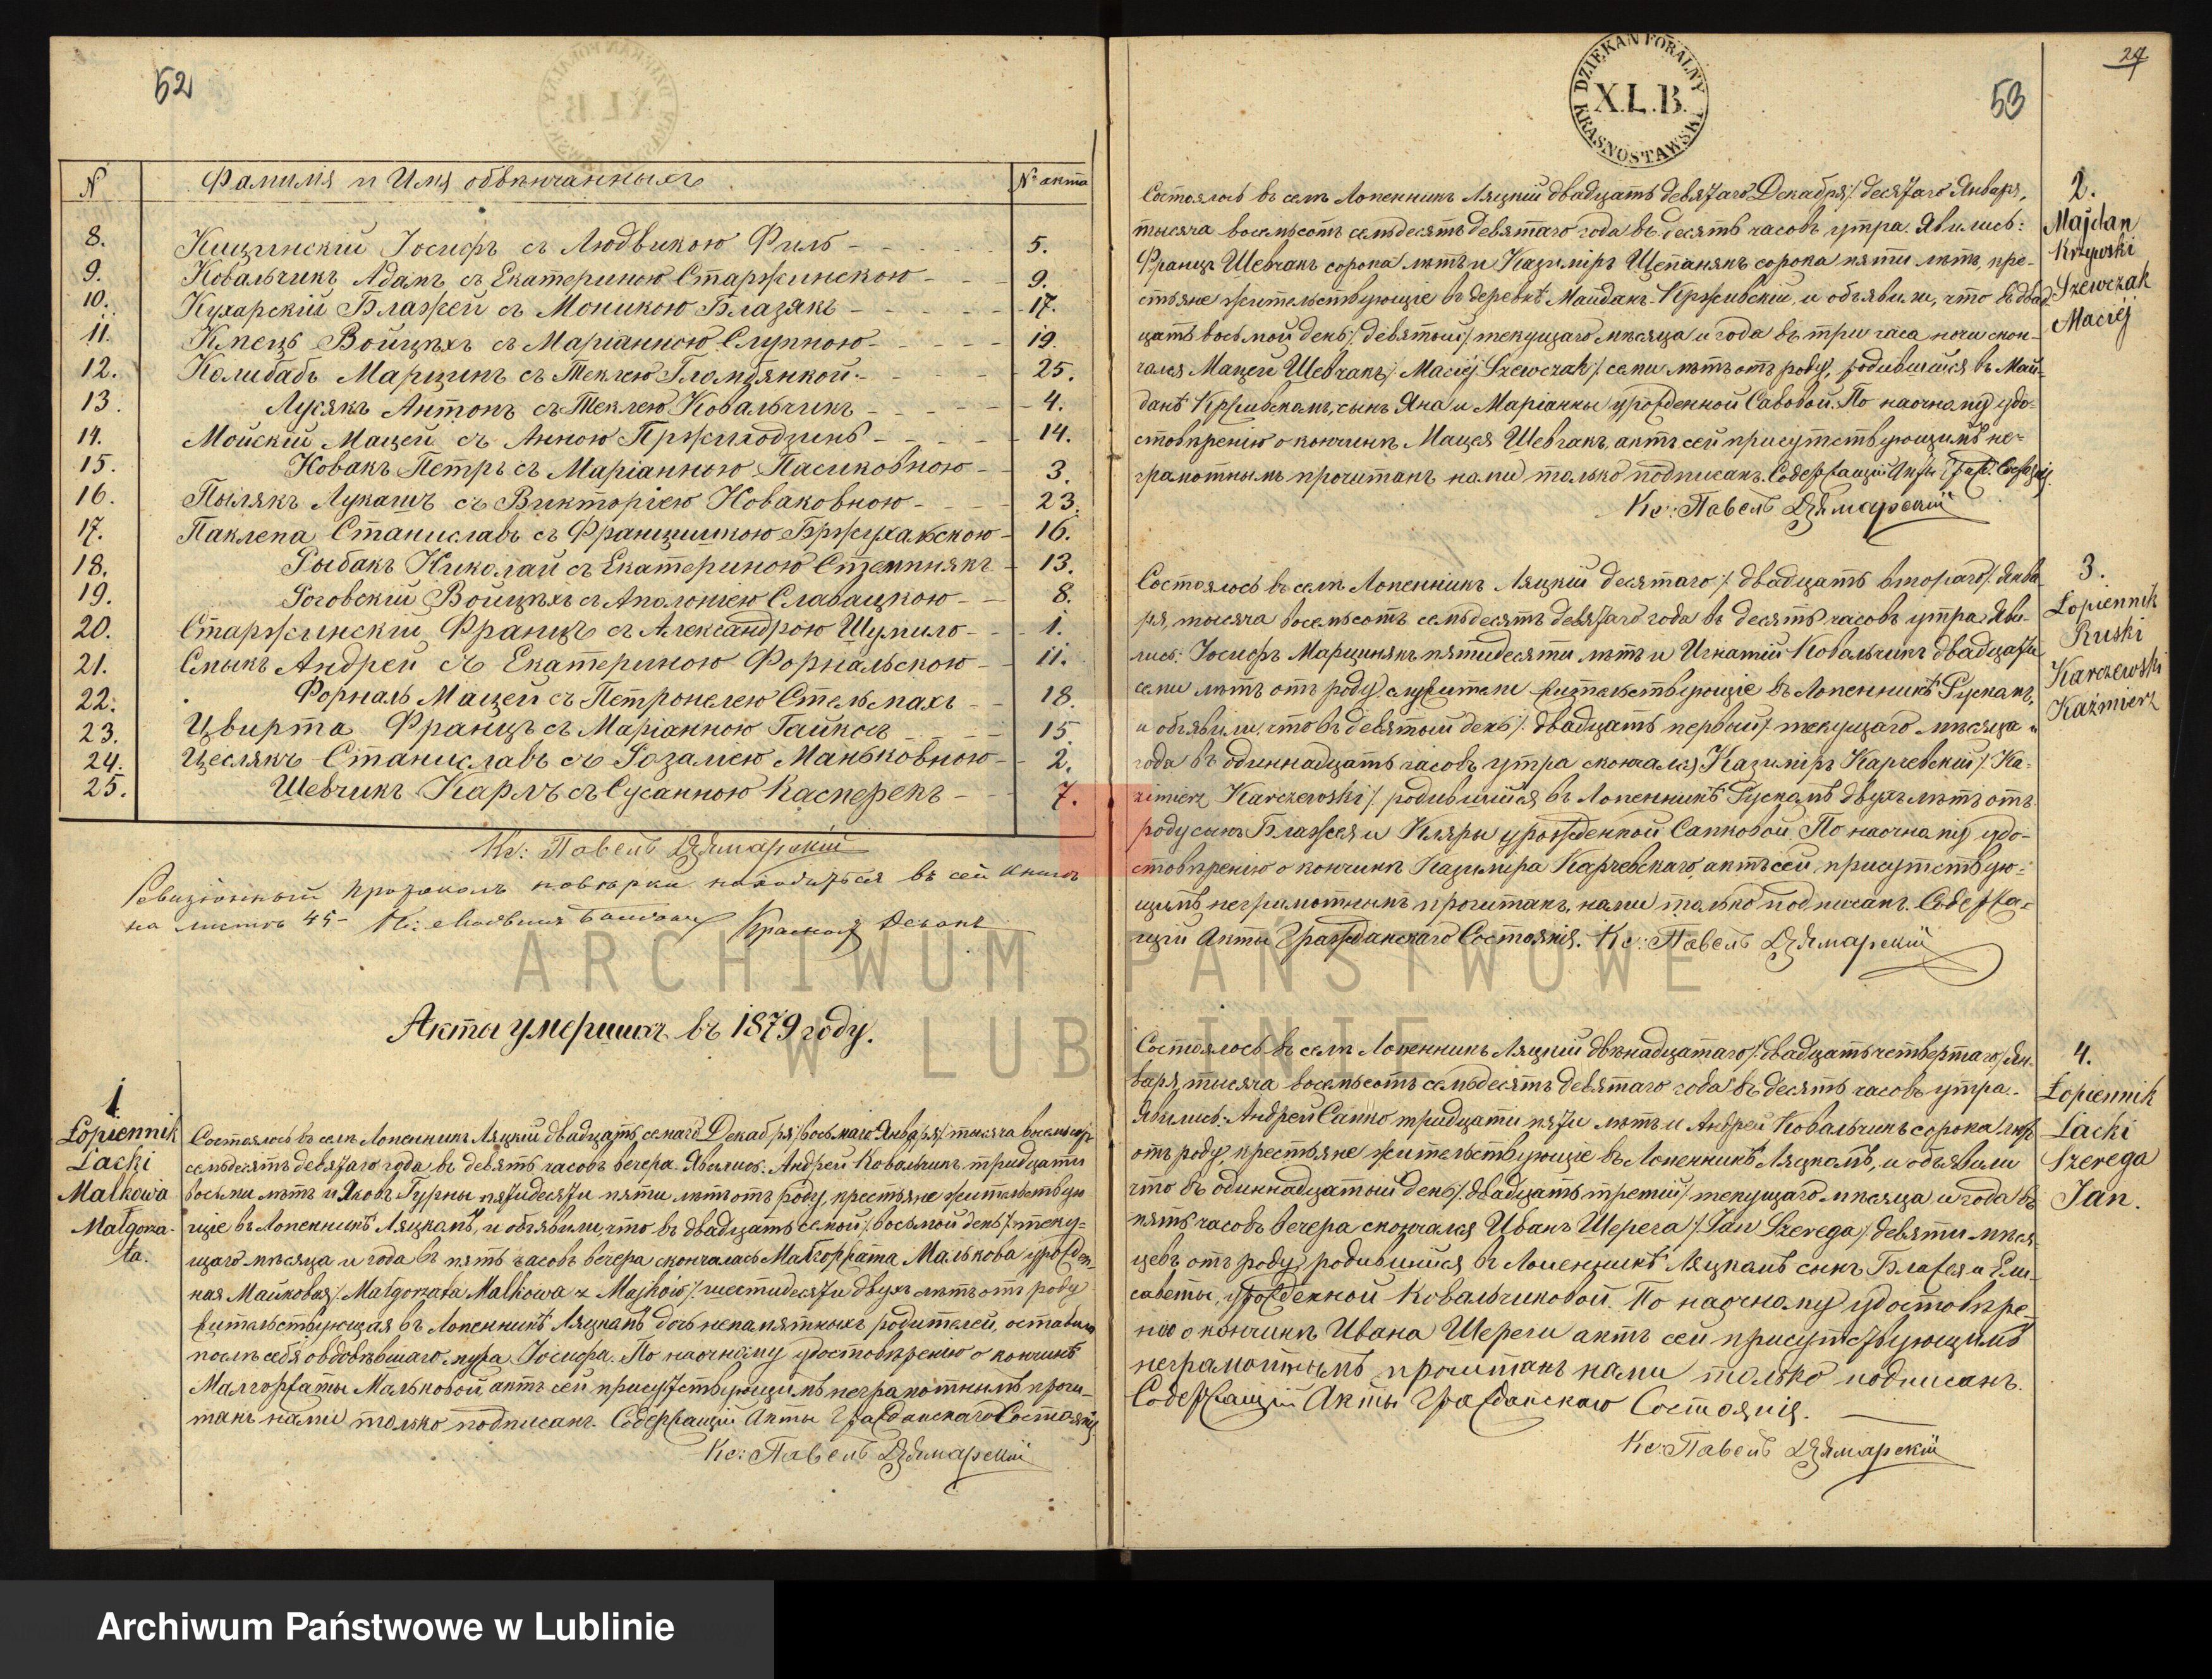 52
N Фамилія и Имя обвѣнчанныхъ № акта
8. Кицинскій Іосифъ съ Людвикою Филь 5.
9. Ковальчикъ Адамъ съ Екатериною Старжинскою 9.
10. Кухарскій Блажей съ Моникою Блазякъ 17.
11. Кмець Войцѣхъ съ Маріанною Слупною 19.
12. Колибабъ Марцинъ съ Теклею Гломбянкой 25.
13. Лусякъ Антонъ съ Теклею Ковальчикъ 4.
14. Мойскій Мацей съ Анною Пржиходзинь 14.
15. Новакъ Петръ съ Маріанною Пасиковною 3.
16. Пылякъ Лукашъ съ Викторіею Новаковною 23.
17. Паклепа Станиславъ съ Францишкою Бржухальскою 16.
18. Рыбакъ Николай съ Екатериною Стемпнякъ 13.
19. Роговскій Войцѣхъ съ Аполоніею Славацкою 8.
20. Старжинскій Францъ съ Александрою Шумило 1.
21. Смыкъ Андрей съ Екатериною Форнальскою 11.
22. Форналь Мацей съ Петронелею Стельмахъ 18.
23. Цвирта Францъ съ Маріанною Гайкосъ 15.
24. Цеслякъ Станиславъ съ Розаліею Маньковною 2.
25. Шевчикъ Карлъ съ Сусанною Касперекъ 7.
Кс: Павелъ Дзямарскій
Ревизіонный протоколъ повѣрки находиться въ сей книгѣ
на листѣ 45
Акта умершихъ въ 1879 году.
1
Łopiennik
Lacki
Malkowa
Małgorza-
ta.
Состоялось въ селѣ Лопенникъ Ляцкій двадцать седмаго Декабря /: восьмаго Января / тысяча восемьсотъ
семьдесятъ девятаго года въ девять часовъ вечера. Явились: Андрей Ковальчикъ тридцати
восьми лѣтъ и Яковъ Гурны пятидесяти пяти лѣтъ отъ роду, крестьяне жительствую
щіе въ Лопенникѣ Ляцкомъ, и объявили, что въ двадцать седмой /: восьмой день / теку-
щаго мѣсяца и года въ пять часовъ вечера скончалась Малгоржата Малькова урожден-
ная Майковая /: Małgorzata Malkowa z Majków / шестидесяти двухъ лѣтъ отъ роду
жительствующая въ Лопенникѣ Ляцкомъ дочь непамятныхъ родителей, оставила
послѣ себя овдовѣвшаго мужа Іосифа. По наочному удостовѣренію о кончинѣ
Малгоржаты Мальковой, актъ сей присутствующимъ неграмотнымъ прочи-
танъ нами только подписанъ. Содержащій Акты Гражданскаго Состоянія
Кс: Павелъ Дзямарскій
DZIEKAN FORALNY
X.L.B.
KRASNOSTAWSKI
53
27
2.
Majdan
Krzywski
Szewczak
Maciéj
Состоялось въ селѣ Лопенникъ Ляцкій двадцать девятаго Декабря /: десятаго Января,
тысяча восемьсотъ семьдесятъ девятаго года въ десять часовъ утра. Явились:
Францъ Шевчакъ сорока лѣтъ и Казимиръ Щепанякъ сорока пяти лѣтъ, кре-
стьяне жительствующіе въ деревнѣ Майданъ Крживскій, и объявили, что въ двад
цать восьмой день /: девятый / текущаго мѣсяца и года въ три часа ночи скон-
чался Мацей Шевчакъ /: Maciéj Szewczak / семи лѣтъ отъ роду, родившійся въ Май-
данѣ Крживскомъ, сынъ Яна и Маріанны урожденной Савовой. По наочному удо-
стовѣренію о кончинѣ Мацея Шевчакъ, актъ сей присутствующимъ не-
грамотнымъ прочитанъ нами только подписанъ. Содержащій Акты Граж. Состоянія
Кс: Павелъ Дзямарскій
3.
Łopiennik
Ruski
Karczewski
Kaźmierz
Состоялось въ селѣ Лопенникъ Ляцкій десятаго /: двадцать втораго / Янва
ря, тысяча восемьсотъ семьдесятъ девятаго года въ десять часовъ утра. Яви-
лись: Іосифъ Марцинякъ пятидесяти лѣтъ и Игнатій Ковальчикъ двадцати
семи лѣтъ отъ роду, служители жительствующіе въ Лопенникѣ Рускомъ,
и объявили, что въ девятый день /: двадцать первый / текущаго мѣсяца и
года въ одиннадцать часовъ утра скончался Казимиръ Карчевскій /: Ka-
zimierz Karczewski / родившійся въ Лопенникѣ Рускомъ двухъ лѣтъ отъ
роду сынъ Блажея и Кляры урожденной Сапковой. По наочному удо-
стовѣренію о кончинѣ Казимира Карчевскаго, актъ сей присутствую-
щимъ неграмотнымъ прочитанъ, нами только подписанъ. Содержа-
щій Акты Гражданскаго Состоянія. Кс: Павелъ Дзямарскій
4.
Łopiennik
Lacki
Szerega
Jan.
Состоялось въ селѣ Лопенникъ Ляцкій двѣнадцатаго /: двадцать четвертаго / Ян-
варя, тысяча восемьсотъ семьдесятъ девятаго года въ десять часовъ утра.
Явились: Андрей Сапко тридцати пяти лѣтъ и Андрей Ковальчикъ сорока лѣтъ
отъ роду крестьяне жительствующіе въ Лопенникѣ Ляцкомъ, и объявили
что въ одиннадцатый день /: двадцать третій / текущаго мѣсяца и года въ
пять часовъ вечера скончался Иванъ Шерега /: Jan Szerega / девяти мѣся-
цевъ отъ роду, родившійся въ Лопенникѣ Ляцкомъ сынъ Блажея и Ели-
саветы, урожденной Ковальчиковой. По наочному удостовѣре
нію о кончинѣ Ивана Шереги актъ сей присутствующимъ
неграмотнымъ прочитанъ нами только подписанъ.
Содержащій Акты Гражданскаго Состоянія.
Кс: Павелъ Дзямарскій
ARCHIWUM PAŃSTWOWE
W LUBLINIE
Archiwum Państwowe w Lublinie